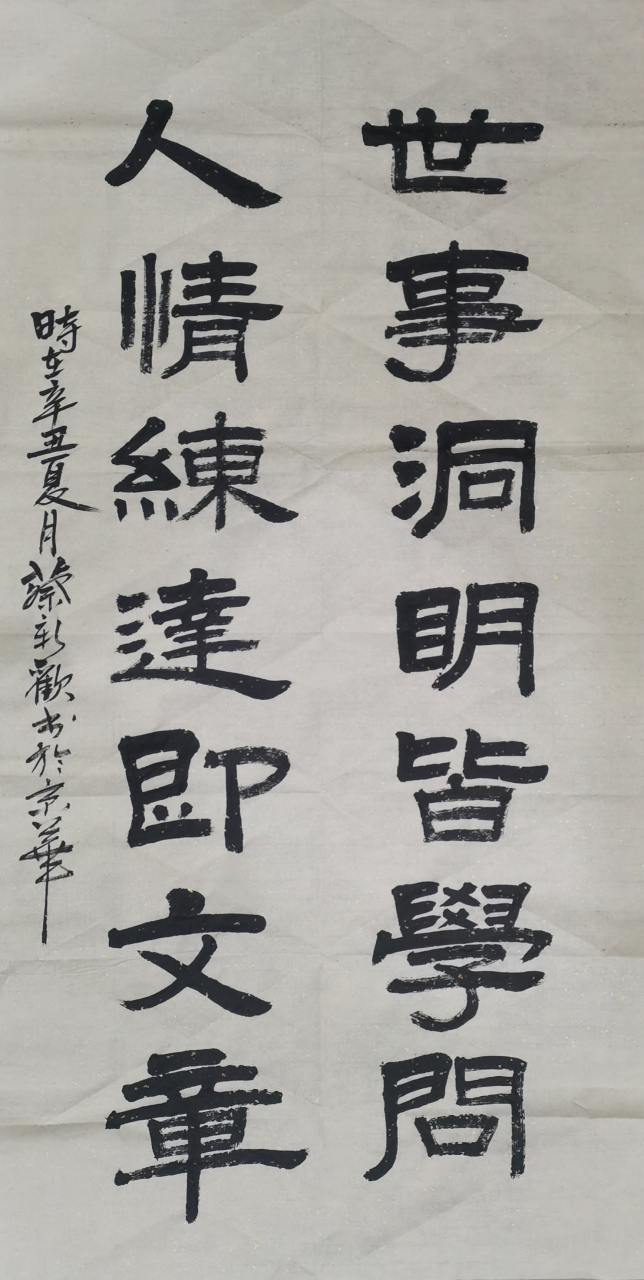 世事洞明皆學問
人情練達即文章
時在辛丑夏月蔡新歡书於京華